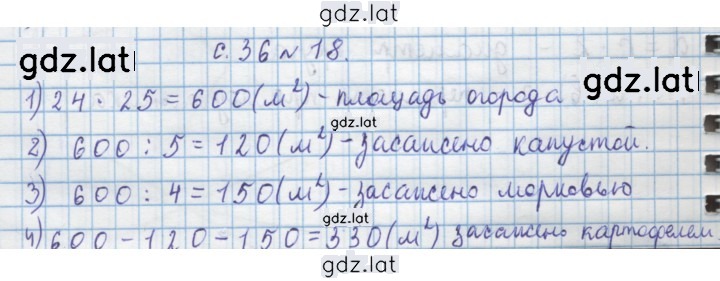 gdz.lat
gdz.lat
с. 36 № 18.
gdz.lat
1) 24 · 25 = 600 (м²) - площадь огорода
2) 600 : 5 = 120 (м²) - засажено капустой.
3) 600 : 4 = 150 (м²) - засажено морковью
4) 600 - 120 - 150 = 330 (м²) засажено картофелем
gdz.lat